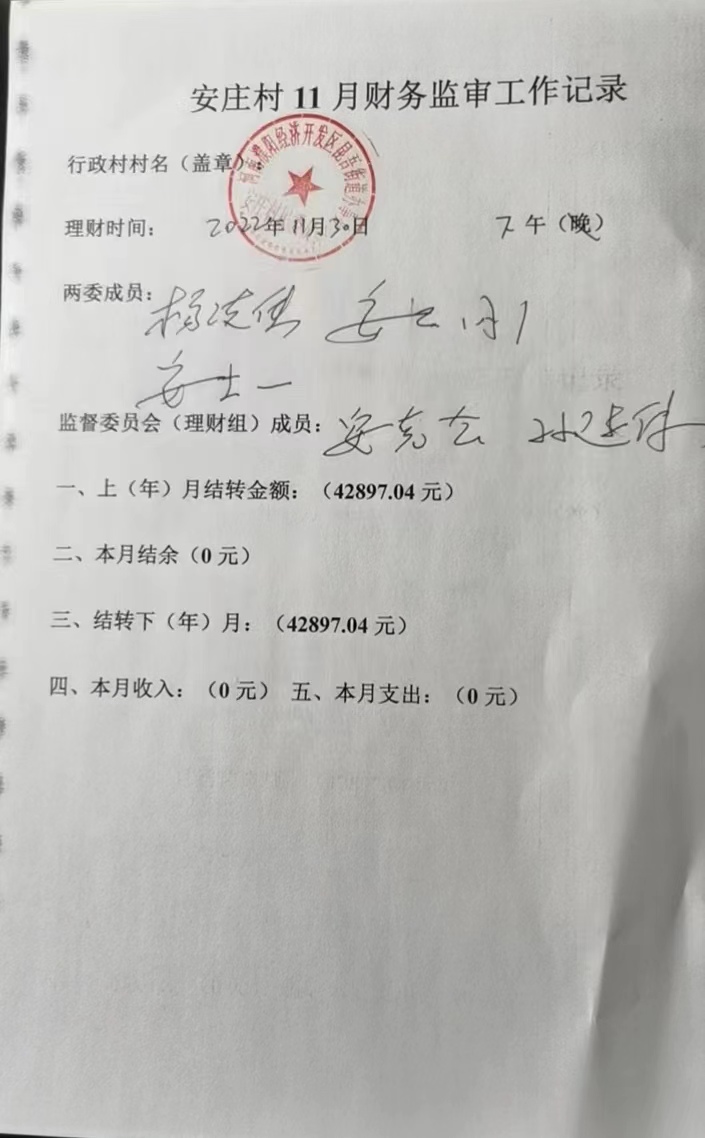 安庄村 11 月财务监审工作记录
行政村村名（盖章）：
河南濮阳经济开发区昆吾街道办事处
理财时间： 2022年11月30日 下午（晚）
两委成员：
安士一
监督委员会（理财组）成员：安克云 孙建伟
一、上（年）月结转金额：（42897.04 元）
二、本月结余（0 元）
三、结转下（年）月：（42897.04 元）
四、本月收入：（0 元） 五、本月支出：（0 元）